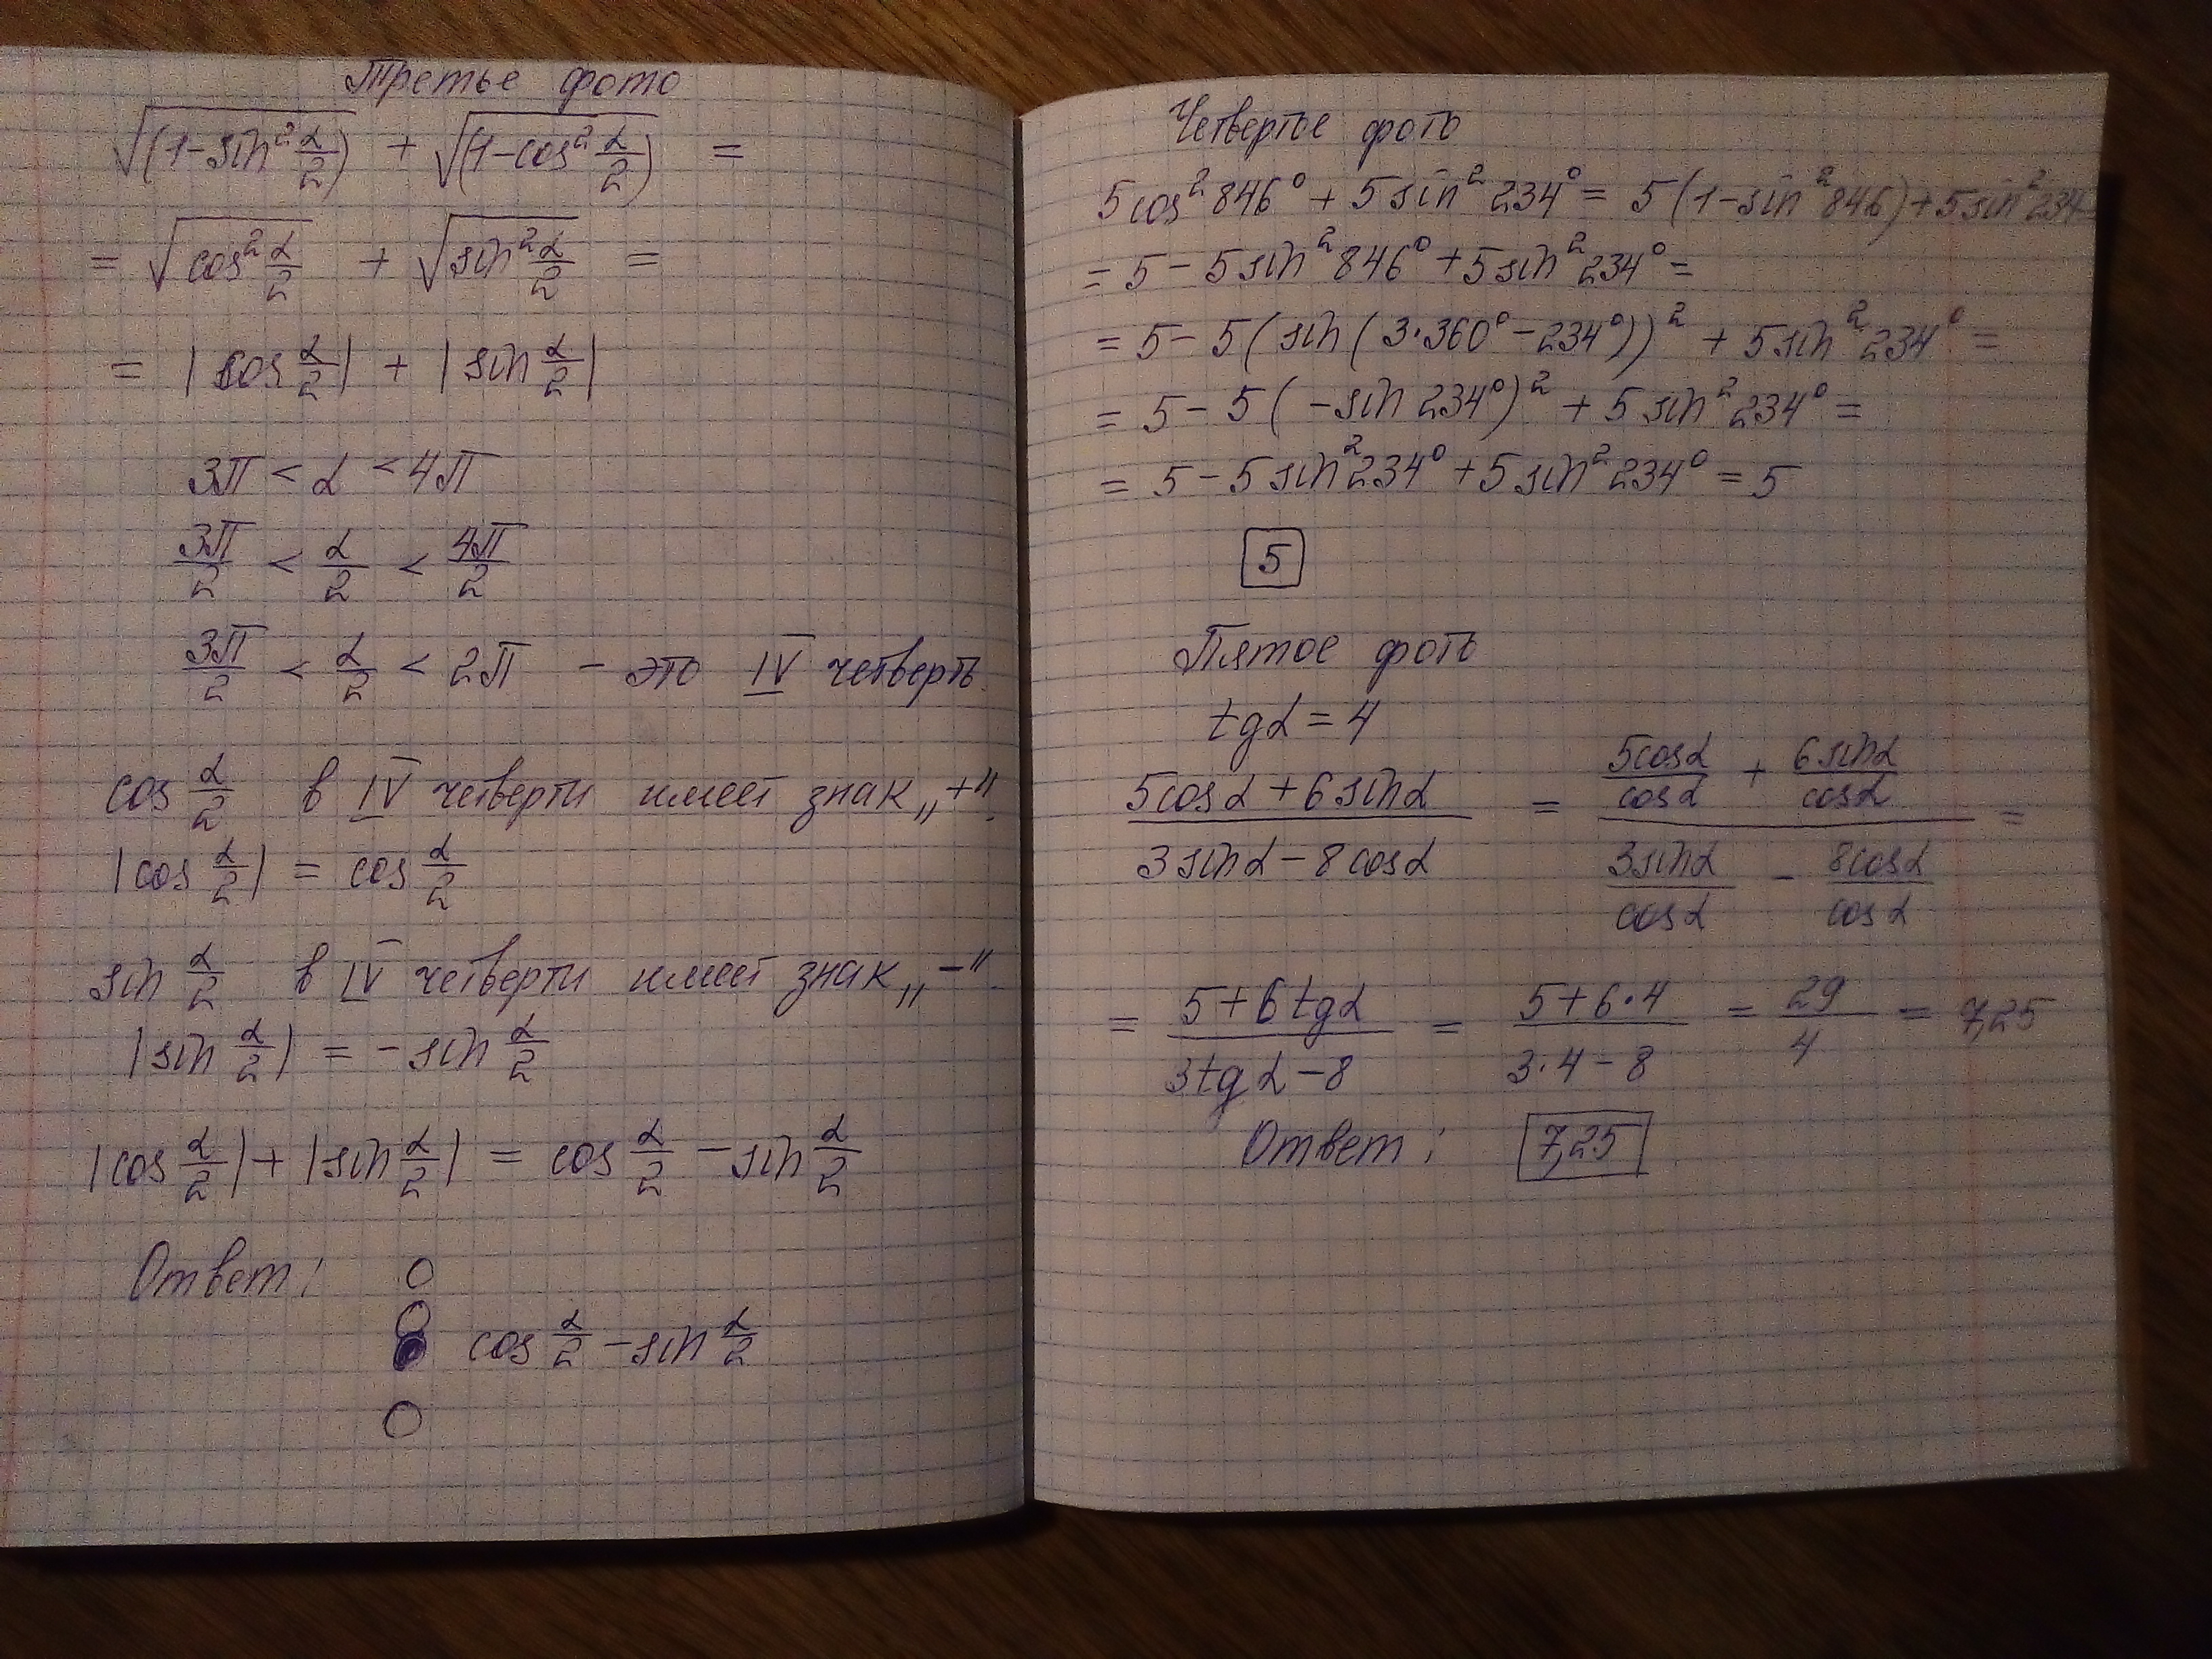 Третье фото
√(1-sin²α/2) + √(1-cos²α/2) =
= √cos²α/2 + √sin²α/2 =
= |cos α/2| + |sin α/2|
3π < α < 4π
3π/2 < α/2 < 4π/2
3π/2 < α/2 < 2π - это IV четверть.
cos α/2 в IV четверти имеет знак „+“.
|cos α/2| = cos α/2
sin α/2 в IV четверти имеет знак „-“.
|sin α/2| = -sin α/2
|cos α/2| + |sin α/2| = cos α/2 - sin α/2
Ответ:
cos α/2 - sin α/2
Четвертое фото
5cos²846° + 5sin²234° = 5(1-sin²846)+5sin²234=
= 5 - 5sin²846° + 5sin²234° =
= 5 - 5(sin(3·360° - 234°))² + 5sin²234° =
= 5 - 5(-sin 234°)² + 5sin²234° =
= 5 - 5sin²234° + 5sin²234° = 5
5
Пятое фото
tgα = 4
(5cosα + 6sinα)/(3sinα - 8cosα) = (5cosα/cosα + 6sinα/cosα)/(3sinα/cosα - 8cosα/cosα) =
= (5+6tgα)/(3tgα-8) = (5+6·4)/(3·4-8) = 29/4 = 7,25
Ответ: 7,25